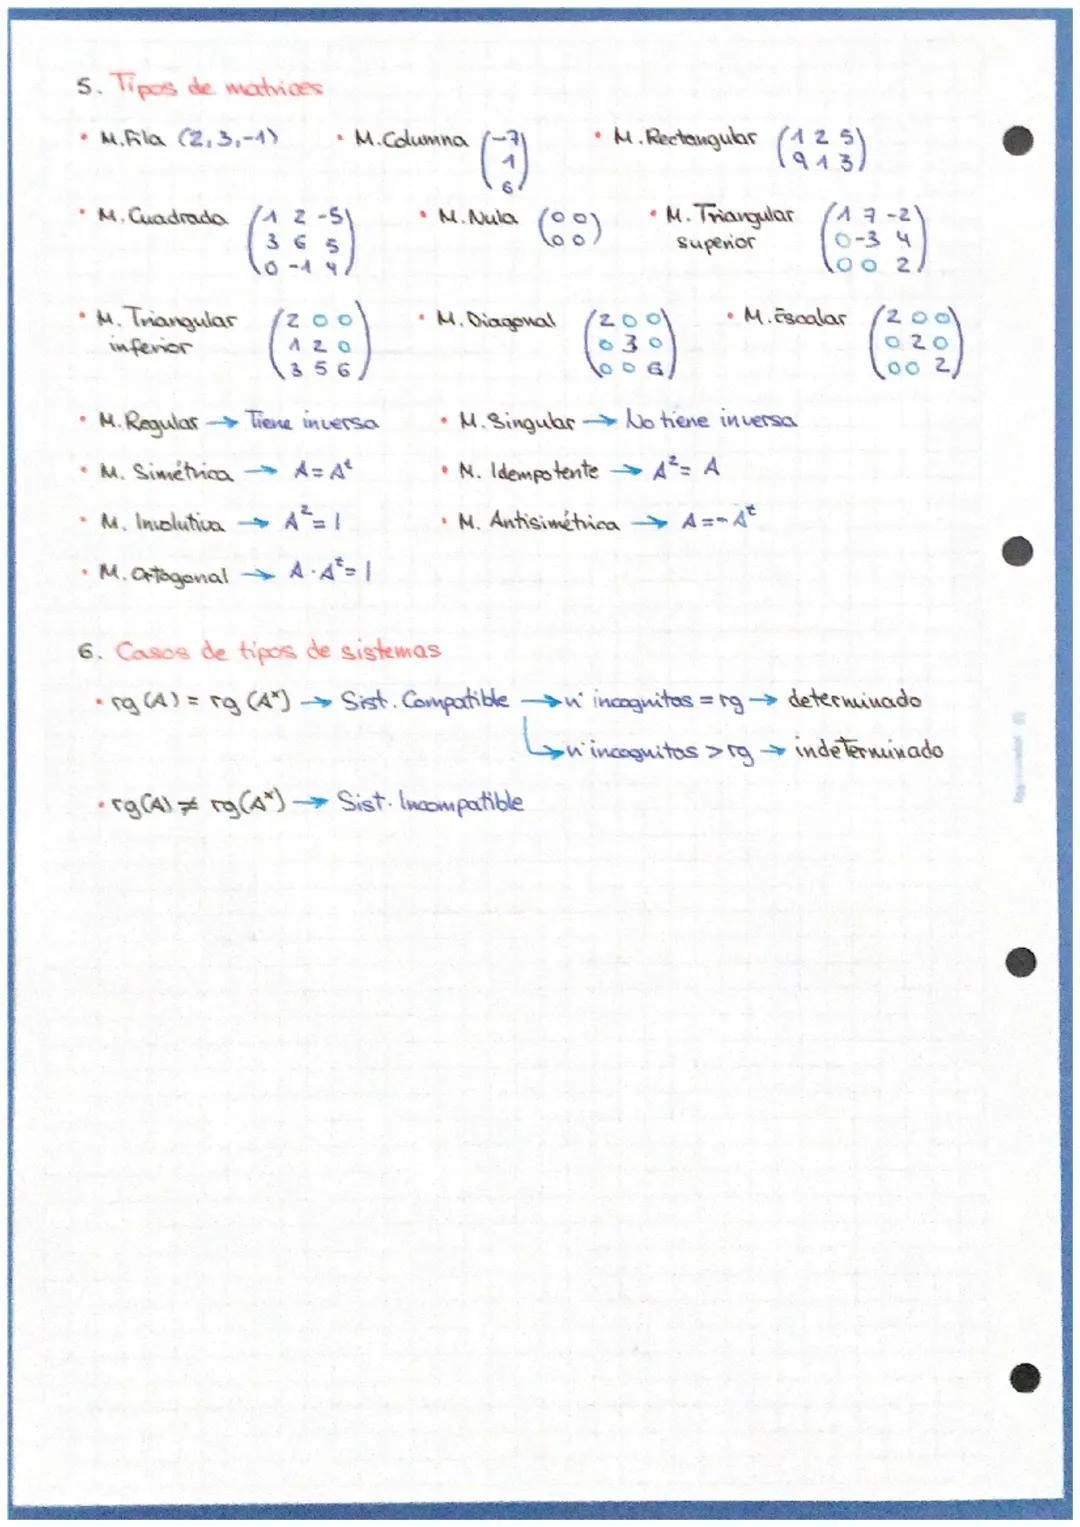 5. Tipos de matrices
• M.Fila (2,3,-1) • M.Columna (-7 1 6) • M.Rectangular (1 2 5 9 1 3)
• M. Cuadrada (1 2 -5 3 6 5 0 -1 4) • M.Nula (0 0 0 0) • M. Triangular superior (1 7 -2 0 -3 4 0 0 2)
• M. Triangular inferior (2 0 0 1 2 0 3 5 6) • M. Diagonal (2 0 0 0 3 0 0 0 6) • M. Escalar (2 0 0 0 2 0 0 0 2)
• M. Regular → Tiene inversa • M. Singular → No tiene inversa
• M. Simétrica → A = Aᵗ • M. Idempotente → A² = A
• M. Involutiva → A² = I • M. Antisimétrica → A = -Aᵗ
• M. Ortogonal → A · Aᵗ = I
6. Casos de tipos de sistemas
• rg (A) = rg (A*) → Sist. Compatible → nº incognitas = rg → determinado
↳ nº incognitas > rg → indeterminado
• rg(A) ≠ rg(A*) → Sist. Incompatible